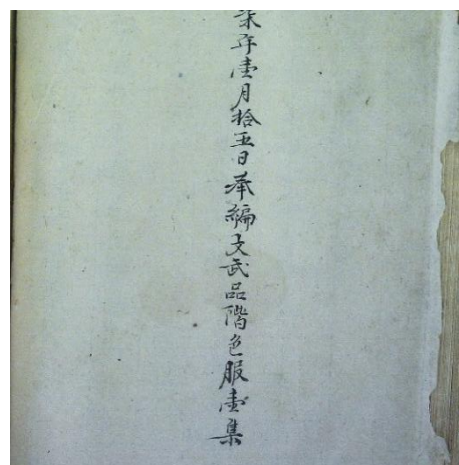 柒年壹月拾五日奉編文武品階色服壹集